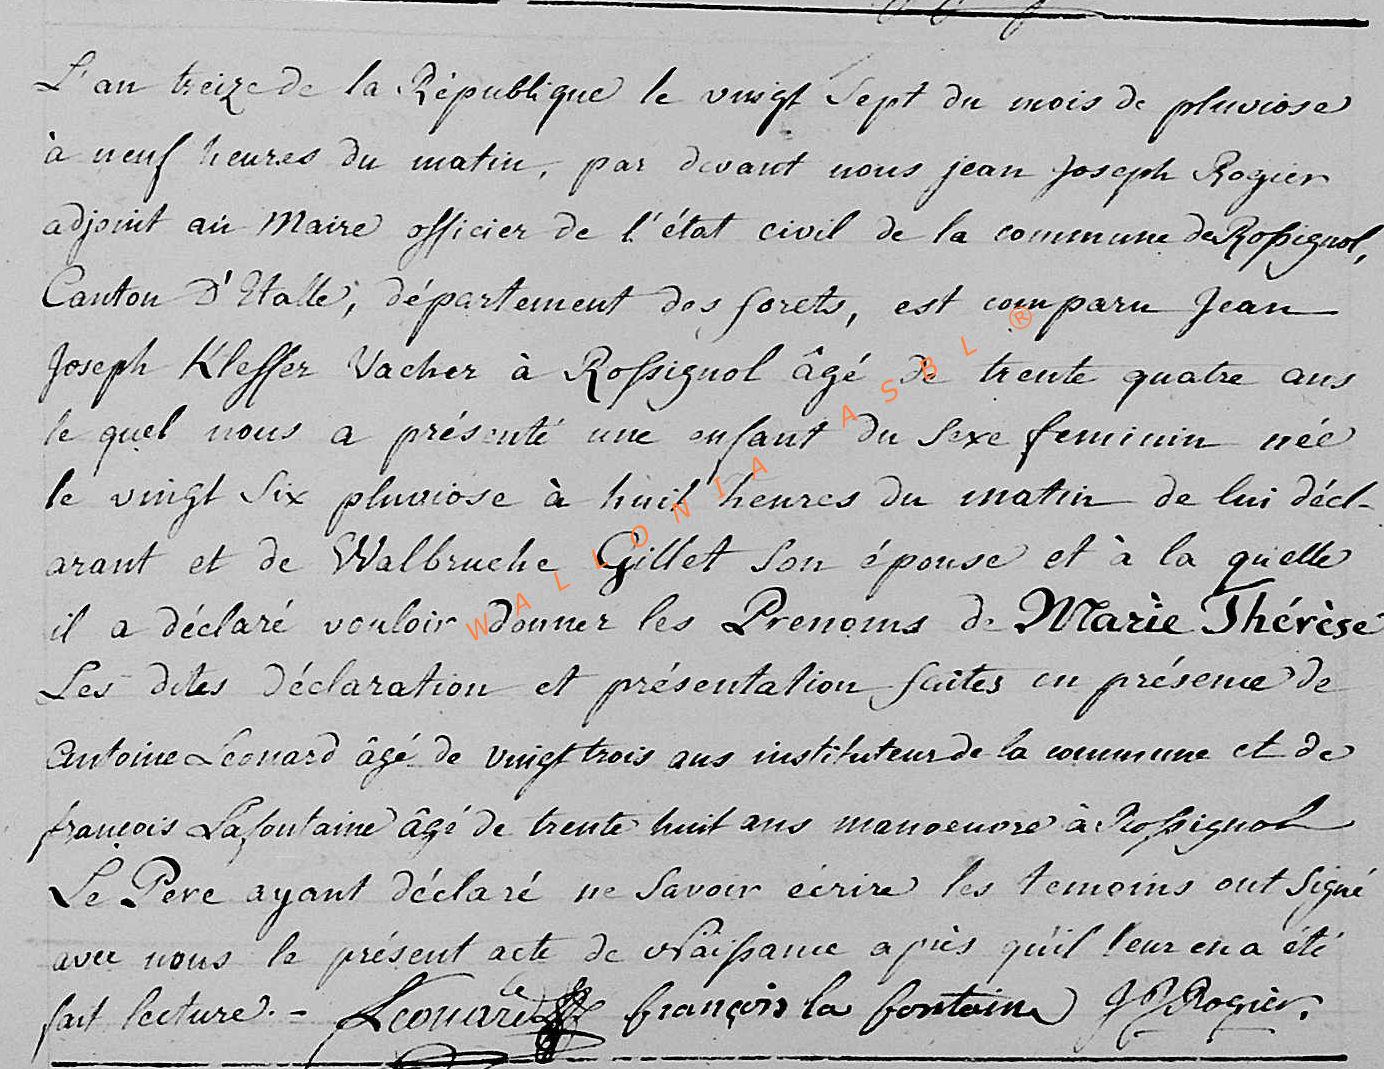 L'an treize de la République le vingt Sept du mois de pluviose
à neuf heures du matin, par devant nous jean Joseph Rogier
adjoint au Maire officier de l'état civil de la commune de Rossignol,
Canton D'Etalle, département des forets, est comparu Jean
Joseph Kleffer Vacher à Rossignol âgé de trente quatre ans
le quel nous a présenté une enfant du Sexe feminin née
le vingt Six pluviose à huit heures du matin de lui décl-
arant et de Walbruche Gillet Son épouse et à la quelle
il a déclaré vouloir donner les Prenoms de Marie Thérèse
Les dites déclaration et présentation faites en présence de
Antoine Leonard âgé de vingt trois ans instituteur de la commune et de
françois Lafontaine âgé de trente huit ans manoeuvre à Rossignol
Le Pere ayant déclaré ne Savoir écrire les temoins ont Signé
avec nous le présent acte de Naissance après qu'il leur en a été
fait lecture. - Leonard françois la fontaine J J Rogier.
WALLONIA ASBL ®